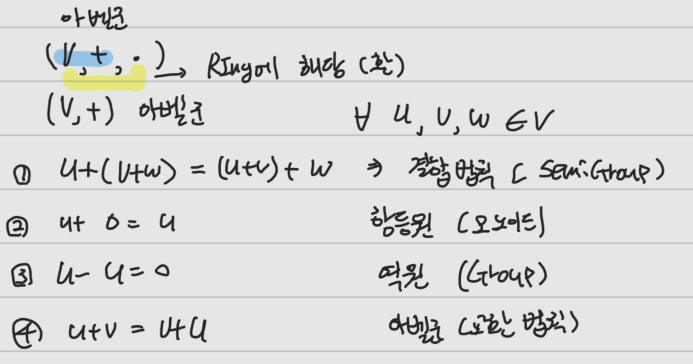 아벨군
(V, +, ·) → Ring에 해당 (환)
(V, +) 아벨군 ∀ u, v, w ∈ V
① u+(v+w) = (u+v)+w ⇒ 결합법칙 (Semi-Group)
② u+ 0 = u 항등원 (모노이드)
③ u- u = 0 역원 (Group)
④ u+v = v+u 아벨군 (교환법칙)